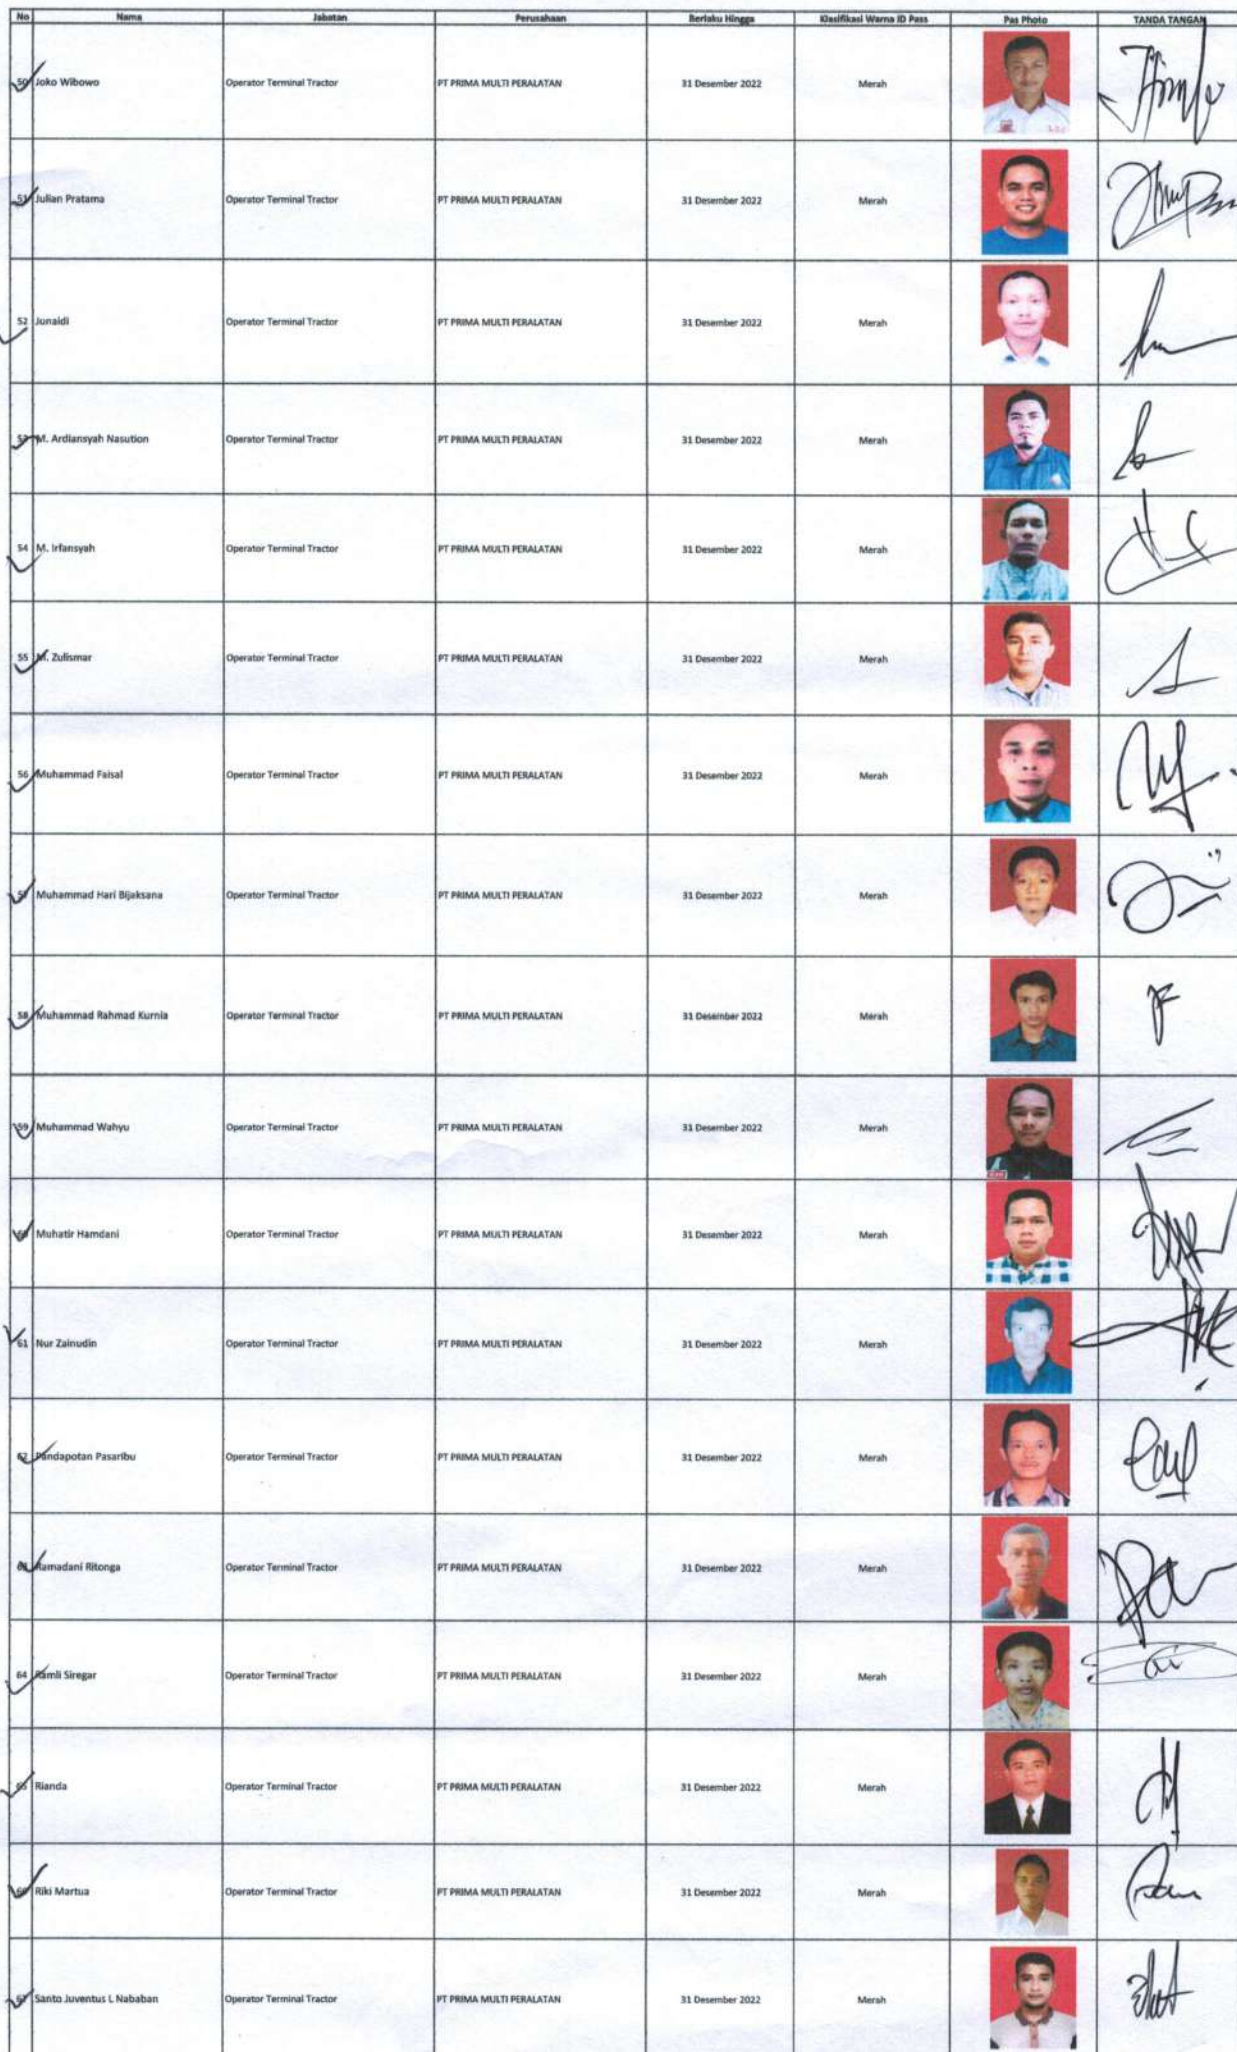 No Nama Jabatan Perusahaan Berlaku Hingga Klasifikasi Warna ID Pass Pas Photo TANDA TANGAN
50 Joko Wibowo Operator Terminal Tractor PT PRIMA MULTI PERALATAN 31 Desember 2022 Merah
51 Julian Pratama Operator Terminal Tractor PT PRIMA MULTI PERALATAN 31 Desember 2022 Merah
52 Junaidi Operator Terminal Tractor PT PRIMA MULTI PERALATAN 31 Desember 2022 Merah
53 M. Ardiansyah Nasution Operator Terminal Tractor PT PRIMA MULTI PERALATAN 31 Desember 2022 Merah
54 M. Irfansyah Operator Terminal Tractor PT PRIMA MULTI PERALATAN 31 Desember 2022 Merah
55 M. Zulismar Operator Terminal Tractor PT PRIMA MULTI PERALATAN 31 Desember 2022 Merah
56 Muhammad Faisal Operator Terminal Tractor PT PRIMA MULTI PERALATAN 31 Desember 2022 Merah
57 Muhammad Hari Bijaksana Operator Terminal Tractor PT PRIMA MULTI PERALATAN 31 Desember 2022 Merah
58 Muhammad Rahmad Kurnia Operator Terminal Tractor PT PRIMA MULTI PERALATAN 31 Desember 2022 Merah
59 Muhammad Wahyu Operator Terminal Tractor PT PRIMA MULTI PERALATAN 31 Desember 2022 Merah
60 Muhatir Hamdani Operator Terminal Tractor PT PRIMA MULTI PERALATAN 31 Desember 2022 Merah
61 Nur Zainudin Operator Terminal Tractor PT PRIMA MULTI PERALATAN 31 Desember 2022 Merah
62 Pandapotan Pasaribu Operator Terminal Tractor PT PRIMA MULTI PERALATAN 31 Desember 2022 Merah
63 Ramadani Ritonga Operator Terminal Tractor PT PRIMA MULTI PERALATAN 31 Desember 2022 Merah
64 Ramli Siregar Operator Terminal Tractor PT PRIMA MULTI PERALATAN 31 Desember 2022 Merah
65 Rianda Operator Terminal Tractor PT PRIMA MULTI PERALATAN 31 Desember 2022 Merah
66 Riki Martua Operator Terminal Tractor PT PRIMA MULTI PERALATAN 31 Desember 2022 Merah
67 Santo Juventus L Nababan Operator Terminal Tractor PT PRIMA MULTI PERALATAN 31 Desember 2022 Merah